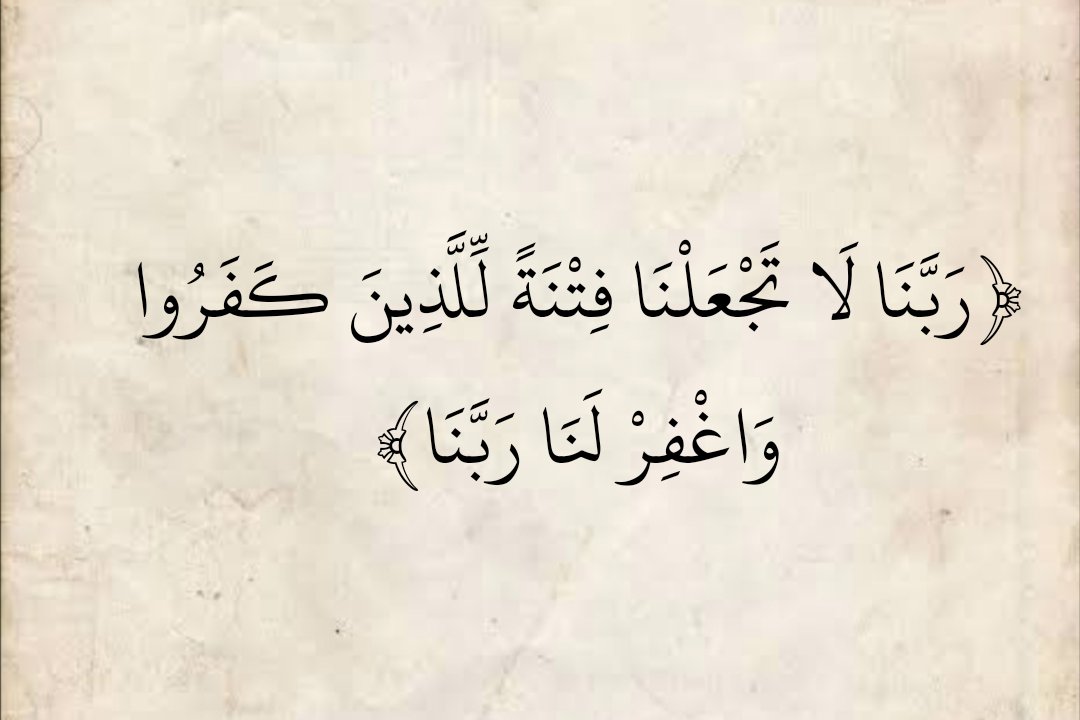 ﴿رَبَّنَا لَا تَجْعَلْنَا فِتْنَةً لِّلَّذِينَ كَفَرُوا
وَاغْفِرْ لَنَا رَبَّنَا﴾